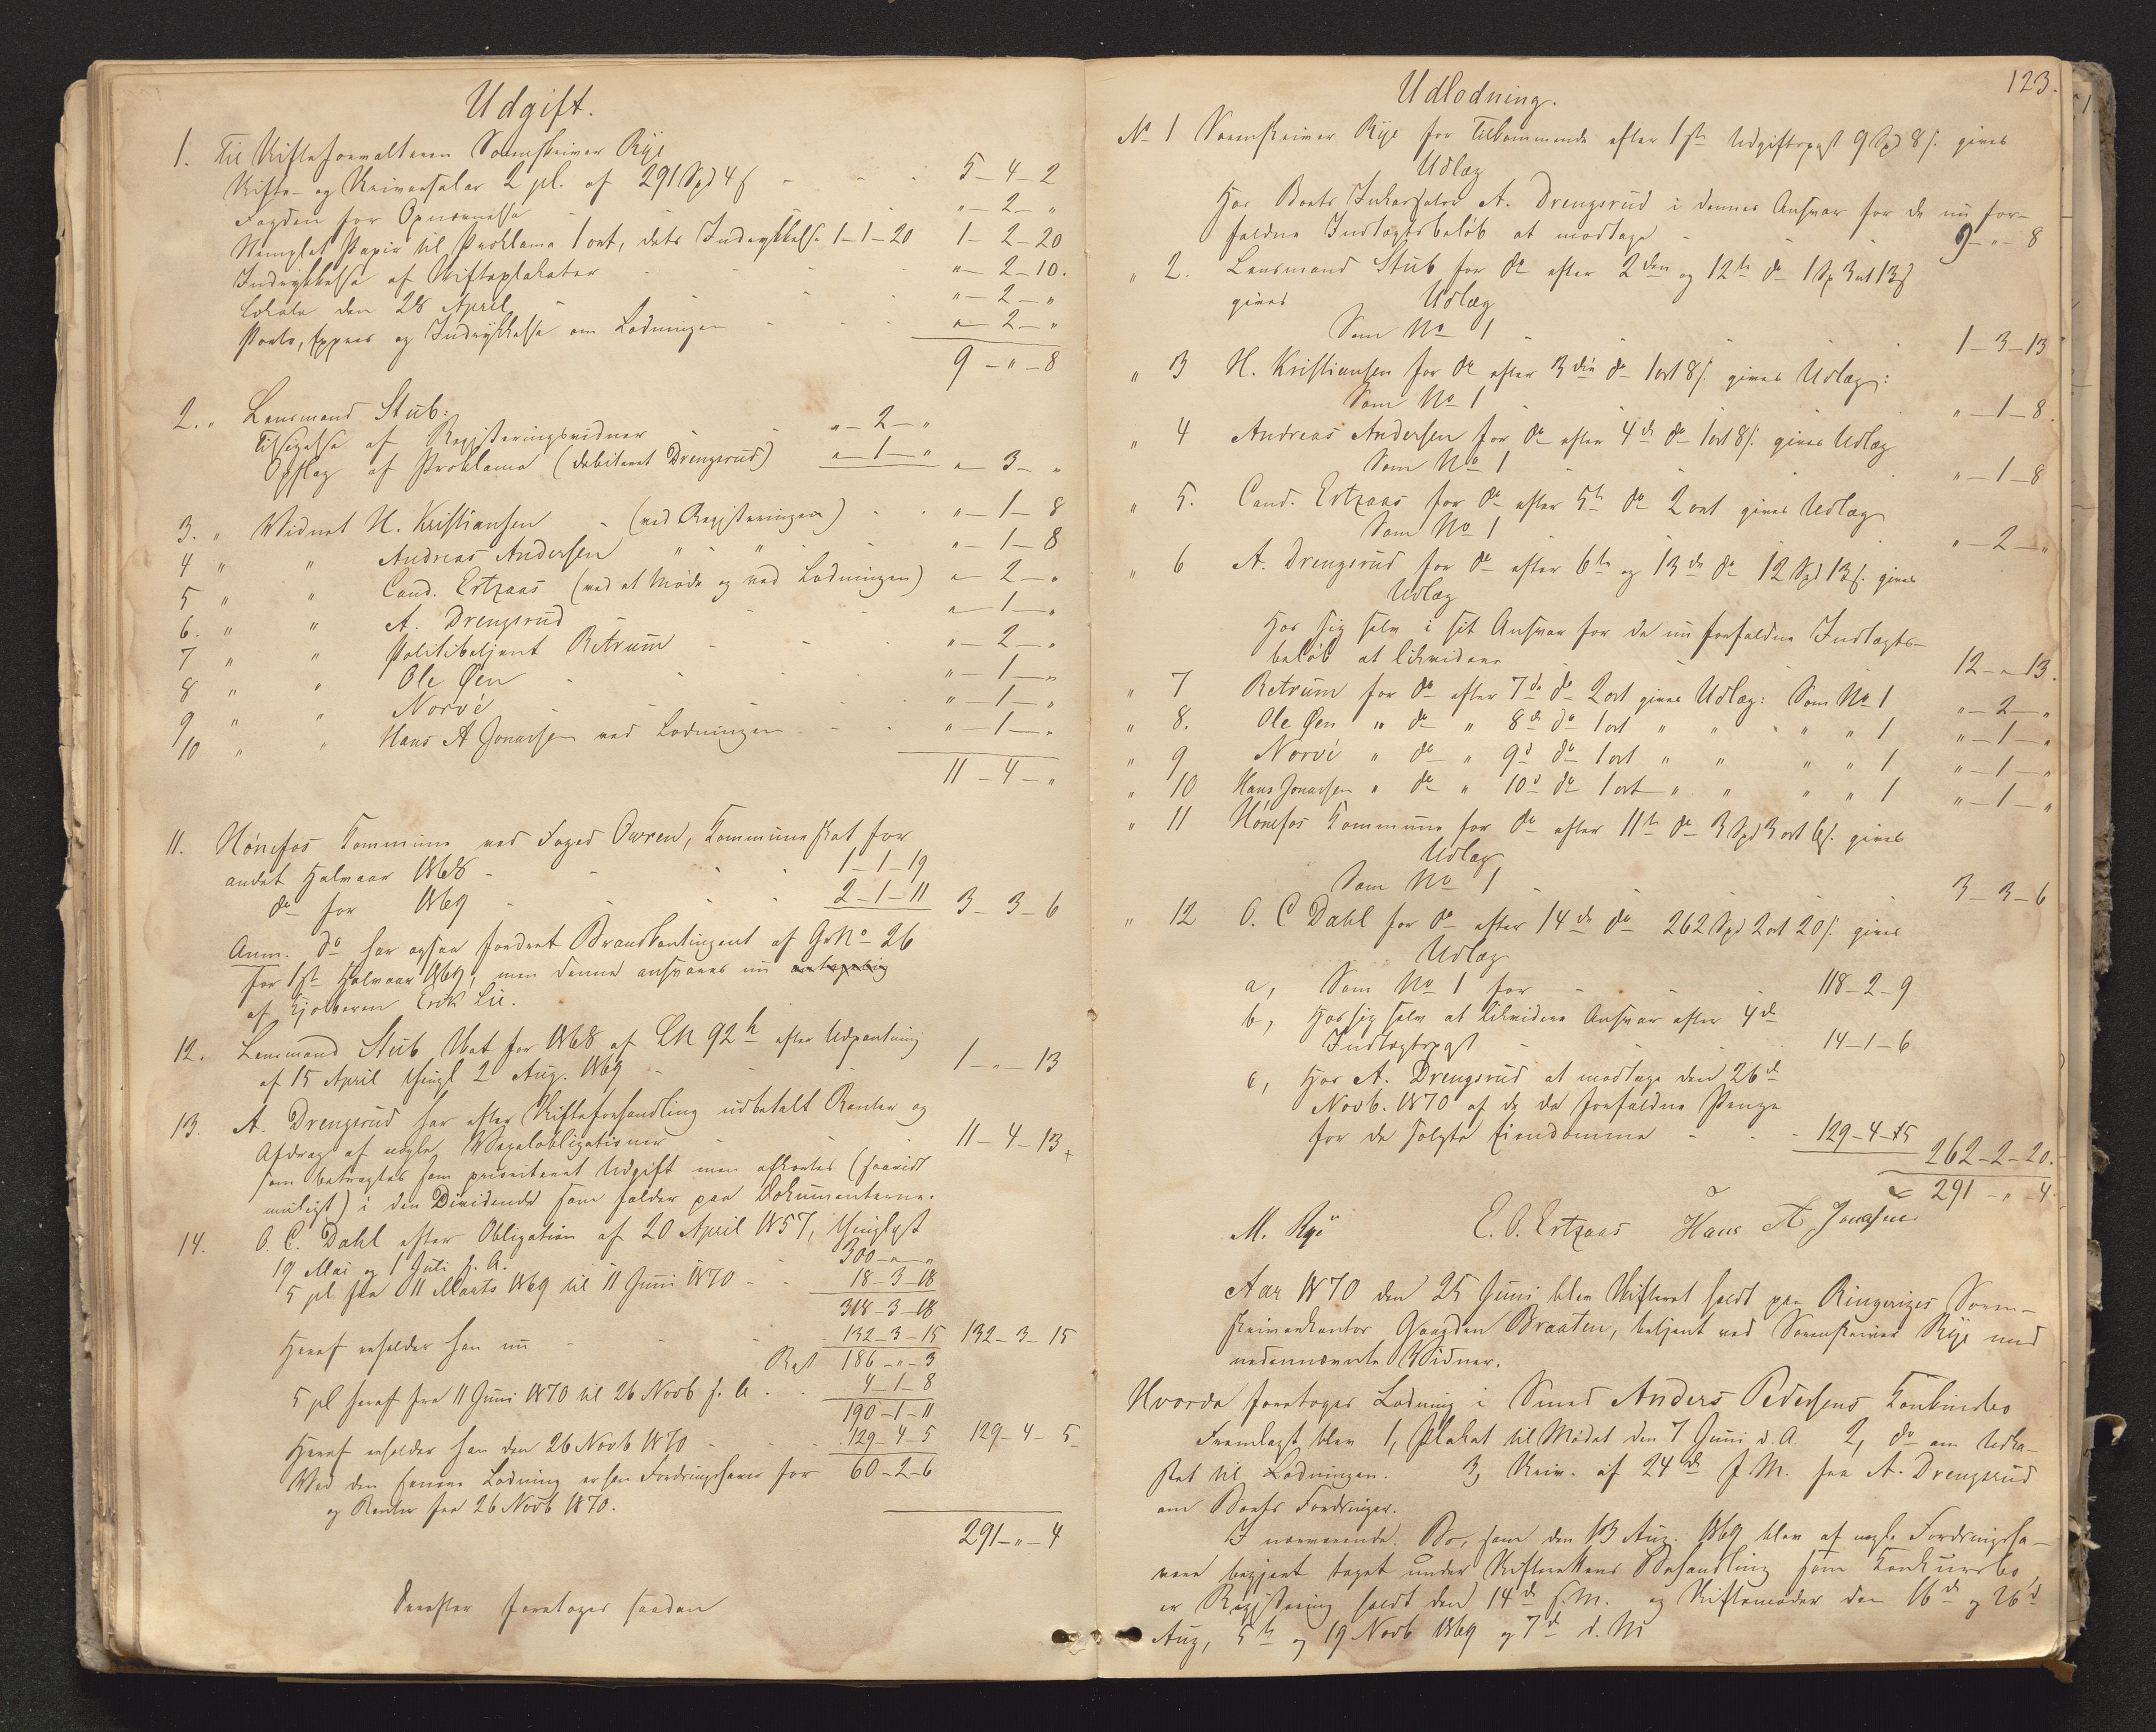 Udgift.
1. Til Skifteforvalteren Sorenskriver Rye
Skifte- og Skriversalær 2 pCt. af 291 Spd 4 ß - - - 5-4-2
Fogden for Opnævnelse - - - " - 2 - "
Stemplet Papir til Proklama 1 ort, dets Indrykkelse 1-1-20 1-2-20
Indrykkelse af Skifteplakater - - - " - 2 - 10.
Lokale den 28 April - - - " - 2 - "
Porto, Expres og Indrykkelse om Lodningen - - - " - 2 - "
9 - " - 8
2. " Lensmand Stub:
Tilsigelse af Registreringsvidner - - " - 2 - "
Opslag af Proklama (debiteret Drengsrud) " - 1 - " " - 3 - "
3. " Vidnet H. Kristiansen - (ved Registreringen) - - " - 1 - 8
4 " " Andreas Andersen " - " - - " - 1 - 8
5 " " Cand. Ertzaas (ved et Møde og ved Lodningen) " - 2 - "
6. " " A. Drengsrud - - - " - 1 - "
7 " " Politibetjent Retrum - - - " - 2 - "
8 " " Ole Øen - - - " - 1 - "
9 " " Norvé - - - " - 1 - "
10 " " Hans A Jonassen ved Lodningen - - " - 1 - "
11 - 4 - "
11. Hønefos Kommune ved Foged Owren, Kommuneskat for
andet Halvaar 1868 - - - 1-1-19
do for 1869 - - - 2-1-11 3-3-6
Anm. do har ogsaa fordret Brandkontingent af GrNo 26
for 1ste Halvaar 1869, men denne ansvares nu
af Kjøberen Erik Lie.
12. Lensmand Stub Skat for 1868 af LN 92 h efter Udpantning
af 15 April thingl 2 Aug. 1869 - - - 1 - " - 13
13. A. Drengsrud har efter Skifteforhandling udbetalt Renter og
Afdrag af nogle Vexelobligationer - - - 11-4-13+
som betragtes som prioriteret Udgift men afkortes (saavidt
muligt) i den Dividende som falder paa Dokumenterne.
14. O. C. Dahl efter Obligation af 20 April 1857, thinglyst
19 Mai og 1 Juli s. A. 300 - " - "
5 pCt fra 11 Marts 1869 til 11 Juni 1870 - - 18-3-18
318-3-18
Heraf erholder han nu - - - 132-3-15 132-3-15
Rest 186 - " - 3
5 pCt heraf fra 11 Juni 1870 til 26 Novb s. A. - - 4-1-8
190-1-11
Heraf erholder han den 26 Novb 1870 - - - 129-4-5 129-4-5
Ved den senere Lodning er han Fordringshaver for 60-2-6
og Renter fra 26 Novb 1870.
291 - " - 4
Derefter foretoges saadan
123.
Udlodning.
No 1 Sorenskriver Rye for Tilkommende efter 1ste Udgiftspost 9 Spd 8 ß. gives
Udlæg
Hos Boets Inkassator A. Drengsrud i dennes Ansvar for de nu for-
faldne Indtægtsbeløb at modtage - - - 9 - " - 8
" 2. Lensmand Stub for do efter 2den og 12te do 1 Sp 3 ort 13 ß
gives Udlæg
Som No 1 - - - 1-3-13
" 3 H. Kristiansen for do efter 3die do 1 ort 8 ß. gives Udlæg:
Som No 1 - - - " - 1 - 8
" 4 Andreas Andersen for do efter 4de do 1 ort 8 ß. gives Udlæg
Som No 1 - - - " - 1 - 8
" 5. Cand. Ertzaas for do efter 5te do 2 ort gives Udlæg
Som No 1 - - - " - 2 - "
" 6 A. Drengsrud for do efter 6te og 13de do 12 Spd 13 ß. gives
Udlæg
Hos sig selv i sit Ansvar for de nu forfaldne Indtægts-
beløb at likvidere - - - 12 - " - 13.
" 7 Retrum for do efter 7de do 2 ort gives Udlæg: Som No 1 " - 2 - "
" 8. Ole Øen " do " 8de do 1 ort " " " " 1 " - 1 - "
" 9 Norvé " do " 9d do 1 ort " " " " 1 " - 1 - "
" 10 Hans Jonassen " do " 10d do 1 ort " " " " 1 " - 1 - "
" 11 Hønefos Kommune for do efter 11te do 3 Spd 3 ort 6 ß. gives
Udlæg
Som No 1 - - - 3-3-6
" 12 O. C Dahl for do efter 14de do 262 Spd 2 ort 20 ß. gives
Udlæg
a, Som No 1 for - - - 118-2-9
b, Hos sig selv at likvidere Ansvar efter 4de
Indtægtspost - - - 14-1-6
c, Hos A. Drengsrud at modtage den 26d
Novb. 1870 af de da forfaldne Penge
for de solgte Eiendomme - - - 129-4-5
262-2-20.
291 - " - 4
M. Rye E. O. Ertzaas Hans A Jonassen
Aar 1870 den 25 Juni blev Skifteret holdt paa Ringeriges Soren-
skriverkontor Gaarden Braaten, betjent ved Sorenskriver Rye med
nedennævnte Vidner.
Hvorda foretoges Lodning i Smed Anders Pedersens Konkursbo
Fremlagt blev 1, Plakat til Mødet den 7 Juni d. A. 2, do om Udka-
stet til Lodningen. 3, Skriv. af 24de f. M. fra A. Drengsrud
om Boets Fordringer.
I nærværende Bo, som den 13 Aug. 1869 blev af nogle Fordringsha-
vere begjæret taget under Skifterettens Behandling som Konkursbo,
er Registrering holdt den 14d s. M. og Skiftemøder den 16d og 26d
Aug, 5te og 19 Novb 1869 og 7d d. M